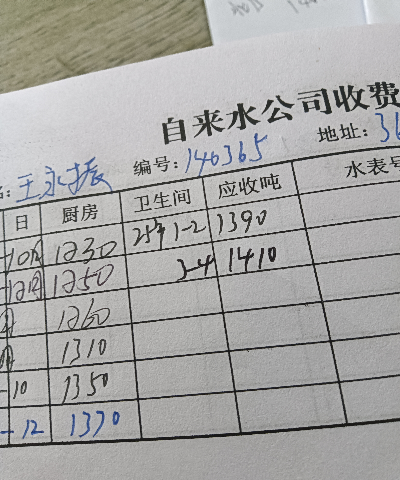 自来水公司收费
名:王永振 编号:140365 地址:36
日 厨房 卫生间 应收吨 水表号
-10月 1230 25年1-2 1390
-12月 1250 3-4 1410
月 1260
月 1310
-10 1350
-12 1370